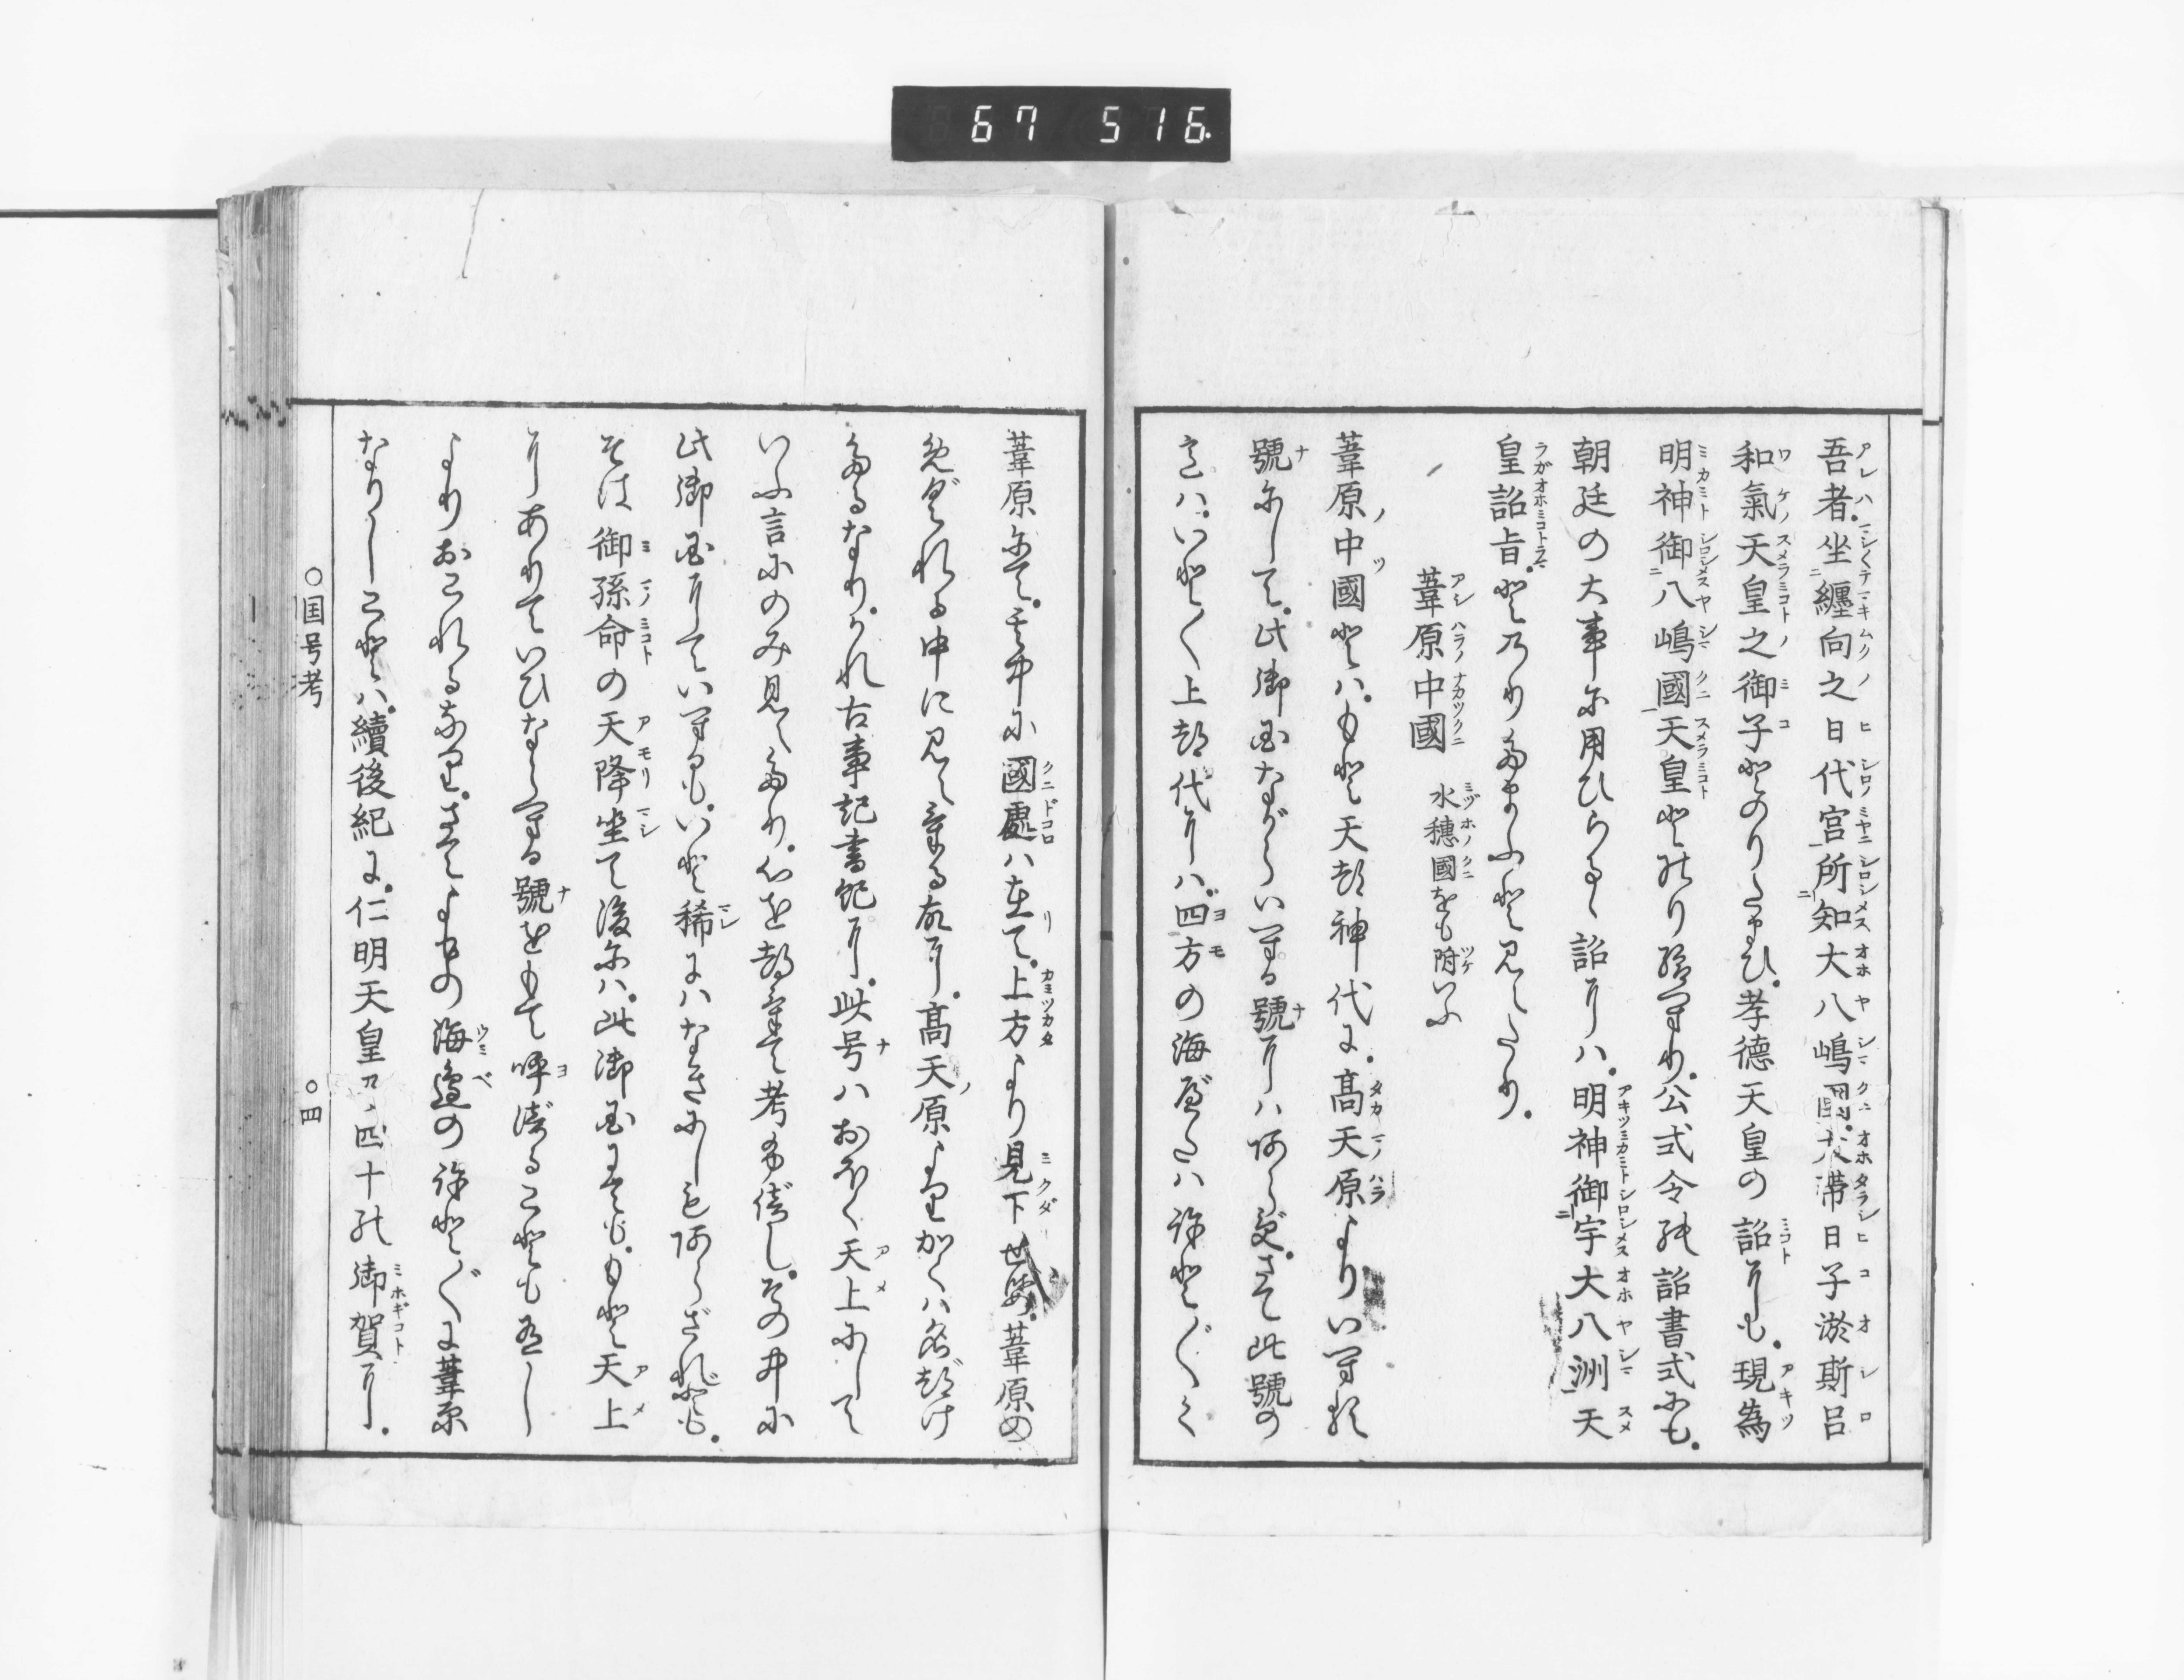 67 516
吾者坐纏向之日代宮所知大八嶋國大帯日子淤斯呂
和氣天皇之御子とのりたまひ孝德天皇の詔にも現為
明神御八嶋國天皇とのり給へり公式令の詔書式にも
朝廷の大事に用ひらるゝ詔には明神御宇大八洲天
皇詔旨とのりたまふと見えたり
葦原中國 水穗國をも附いふ
葦原中國とはもと天つ神代に高天原よりいへる
號にして此御國ながらいへる號にはあらずさて此號の
意はいと〳〵上つ代には四方の海べたはことごとく
葦原にて其中に國處は在て上方より見下せば葦原の
めぐれる中に見えける故に高天原よりかくは名づけ
たるなりかれ古事記書紀に此号はおほく天上にして
いふ言にのみ見えたり心をつけて考ふべしその中に
此御國にしていへるもいと稀にはなきにしもあらざれども
そは御孫命の天降坐て後には此御國にてももと天上
にありていひならへる號をもて呼べることも有し
よりおこれるなりさてよもの海邊のことごとくに葦原
なりしことは續後紀に仁明天皇の四十の御賀に
〇国号考 〇四